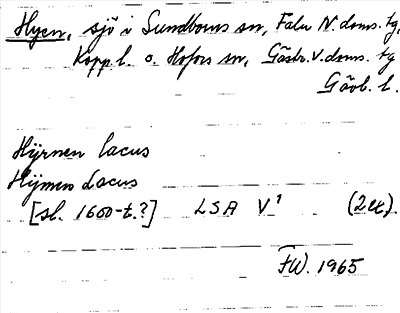 Hyen, sjö i Sundborns sn, Falu N. doms. tg,
Kopp. l. o. Hofors sn, Gästr. V. doms. tg
Gävl. l.
Hÿrnen lacus
Hÿmen Lacus
[sl. 1600-t.?] LSA V¹ (2 ex).
FW. 1965